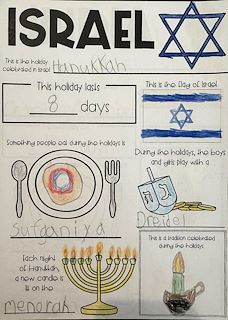 ISRAEL
This is the holiday
celebrated in Israel
Hanukkah
This holiday lasts
8 days
This is the flag of Israel
Something people eat during the holidays is
Sufganiya
During the holidays, the boys
and girls play with a
Dreidel
Each night
of Hanukkah,
a new candle is
lit on the
menorah
This is a tradition celebrated
during the holidays